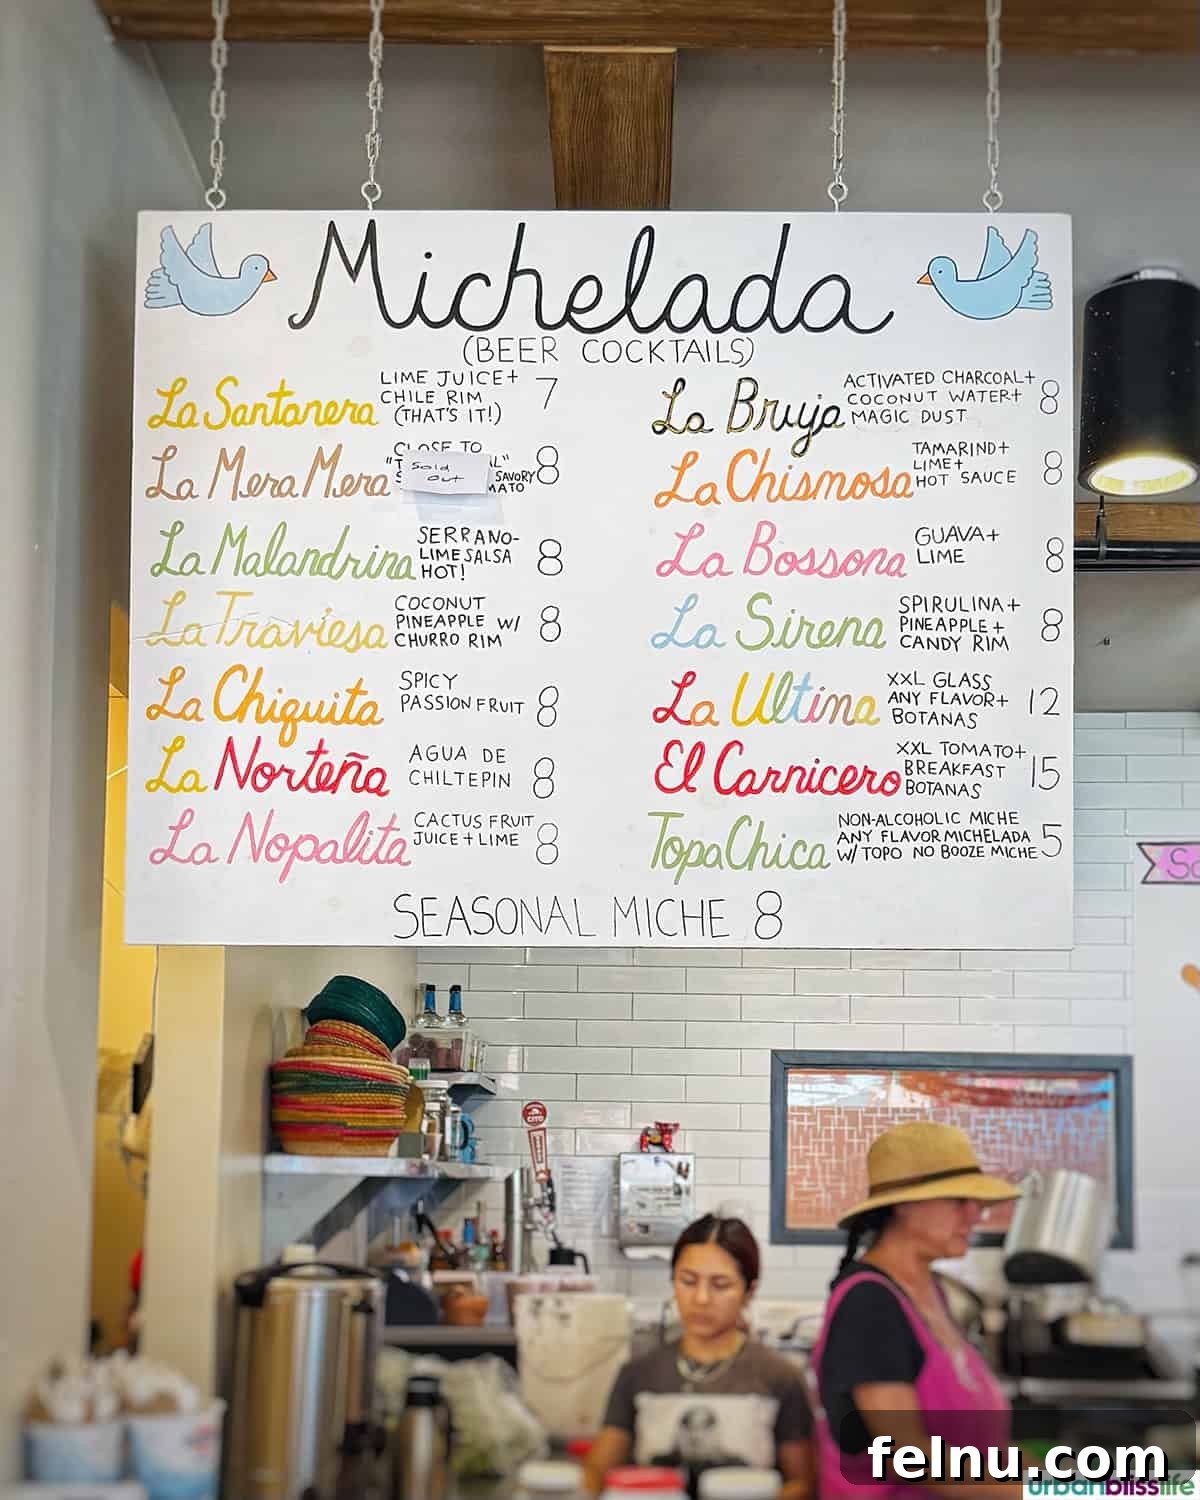 Michelada
(BEER COCKTAILS)
La Santanera
LIME JUICE+
CHILE RIM
(THAT'S IT!)
7
La Mera Mera
CLOSE TO
Sold
out
SAVORY
8
La Malandrina
SERRANO-
LIME SALSA
HOT!
8
La Traviesa
COCONUT
PINEAPPLE W/
CHURRO RIM
8
La Chiquita
SPICY
PASSION FRUIT
8
La Norteña
AGUA DE
CHILTEPIN
8
La Nopalita
CACTUS FRUIT
JUICE + LIME
8
La Bruja
ACTIVATED CHARCOAL+
COCONUT WATER+
MAGIC DUST
8
La Chismosa
TAMARIND+
LIME+
HOT SAUCE
8
La Bossona
GUAVA+
LIME
8
La Sirena
SPIRULINA+
PINEAPPLE+
CANDY RIM
8
La Ultima
XXL GLASS
ANY FLAVOR+
BOTANAS
12
El Carnicero
XXL TOMATO+
BREAKFAST
BOTANAS
15
Topa Chica
NON-ALCOHOLIC MICHE
ANY FLAVOR MICHELADA
W/ TOPO NO BOOZE MICHE
5
SEASONAL MICHE 8
felnu.com
urbanblisslife